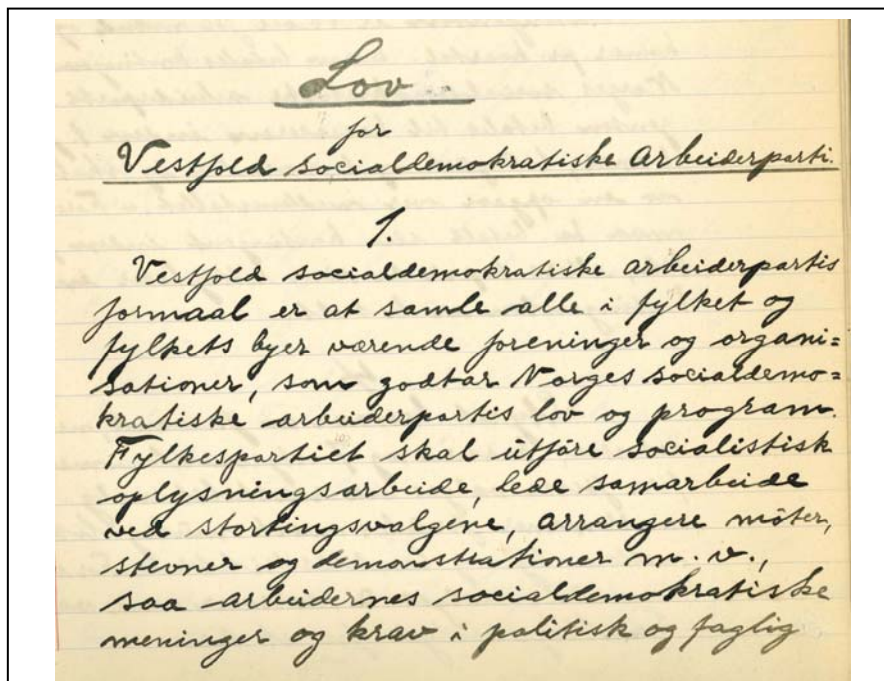 Lov.
for
Vestfold socialdemokratiske Arbeiderparti.
1.
Vestfold socialdemokratiske arbeiderpartis
formaal er at samle alle i fylket og
fylkets byer værende foreninger og organi=
sationer, som godtar Norges socialdemo=
kratiske arbeiderpartis lov og program.
Fylkespartiet skal utføre socialistisk
oplysningsarbeide, lede samarbeide
ved stortingsvalgene, arrangere möter,
stevner og demonstrationer m. v.,
saa arbeidernes socialdemokratiske
meninger og krav i politisk og faglig